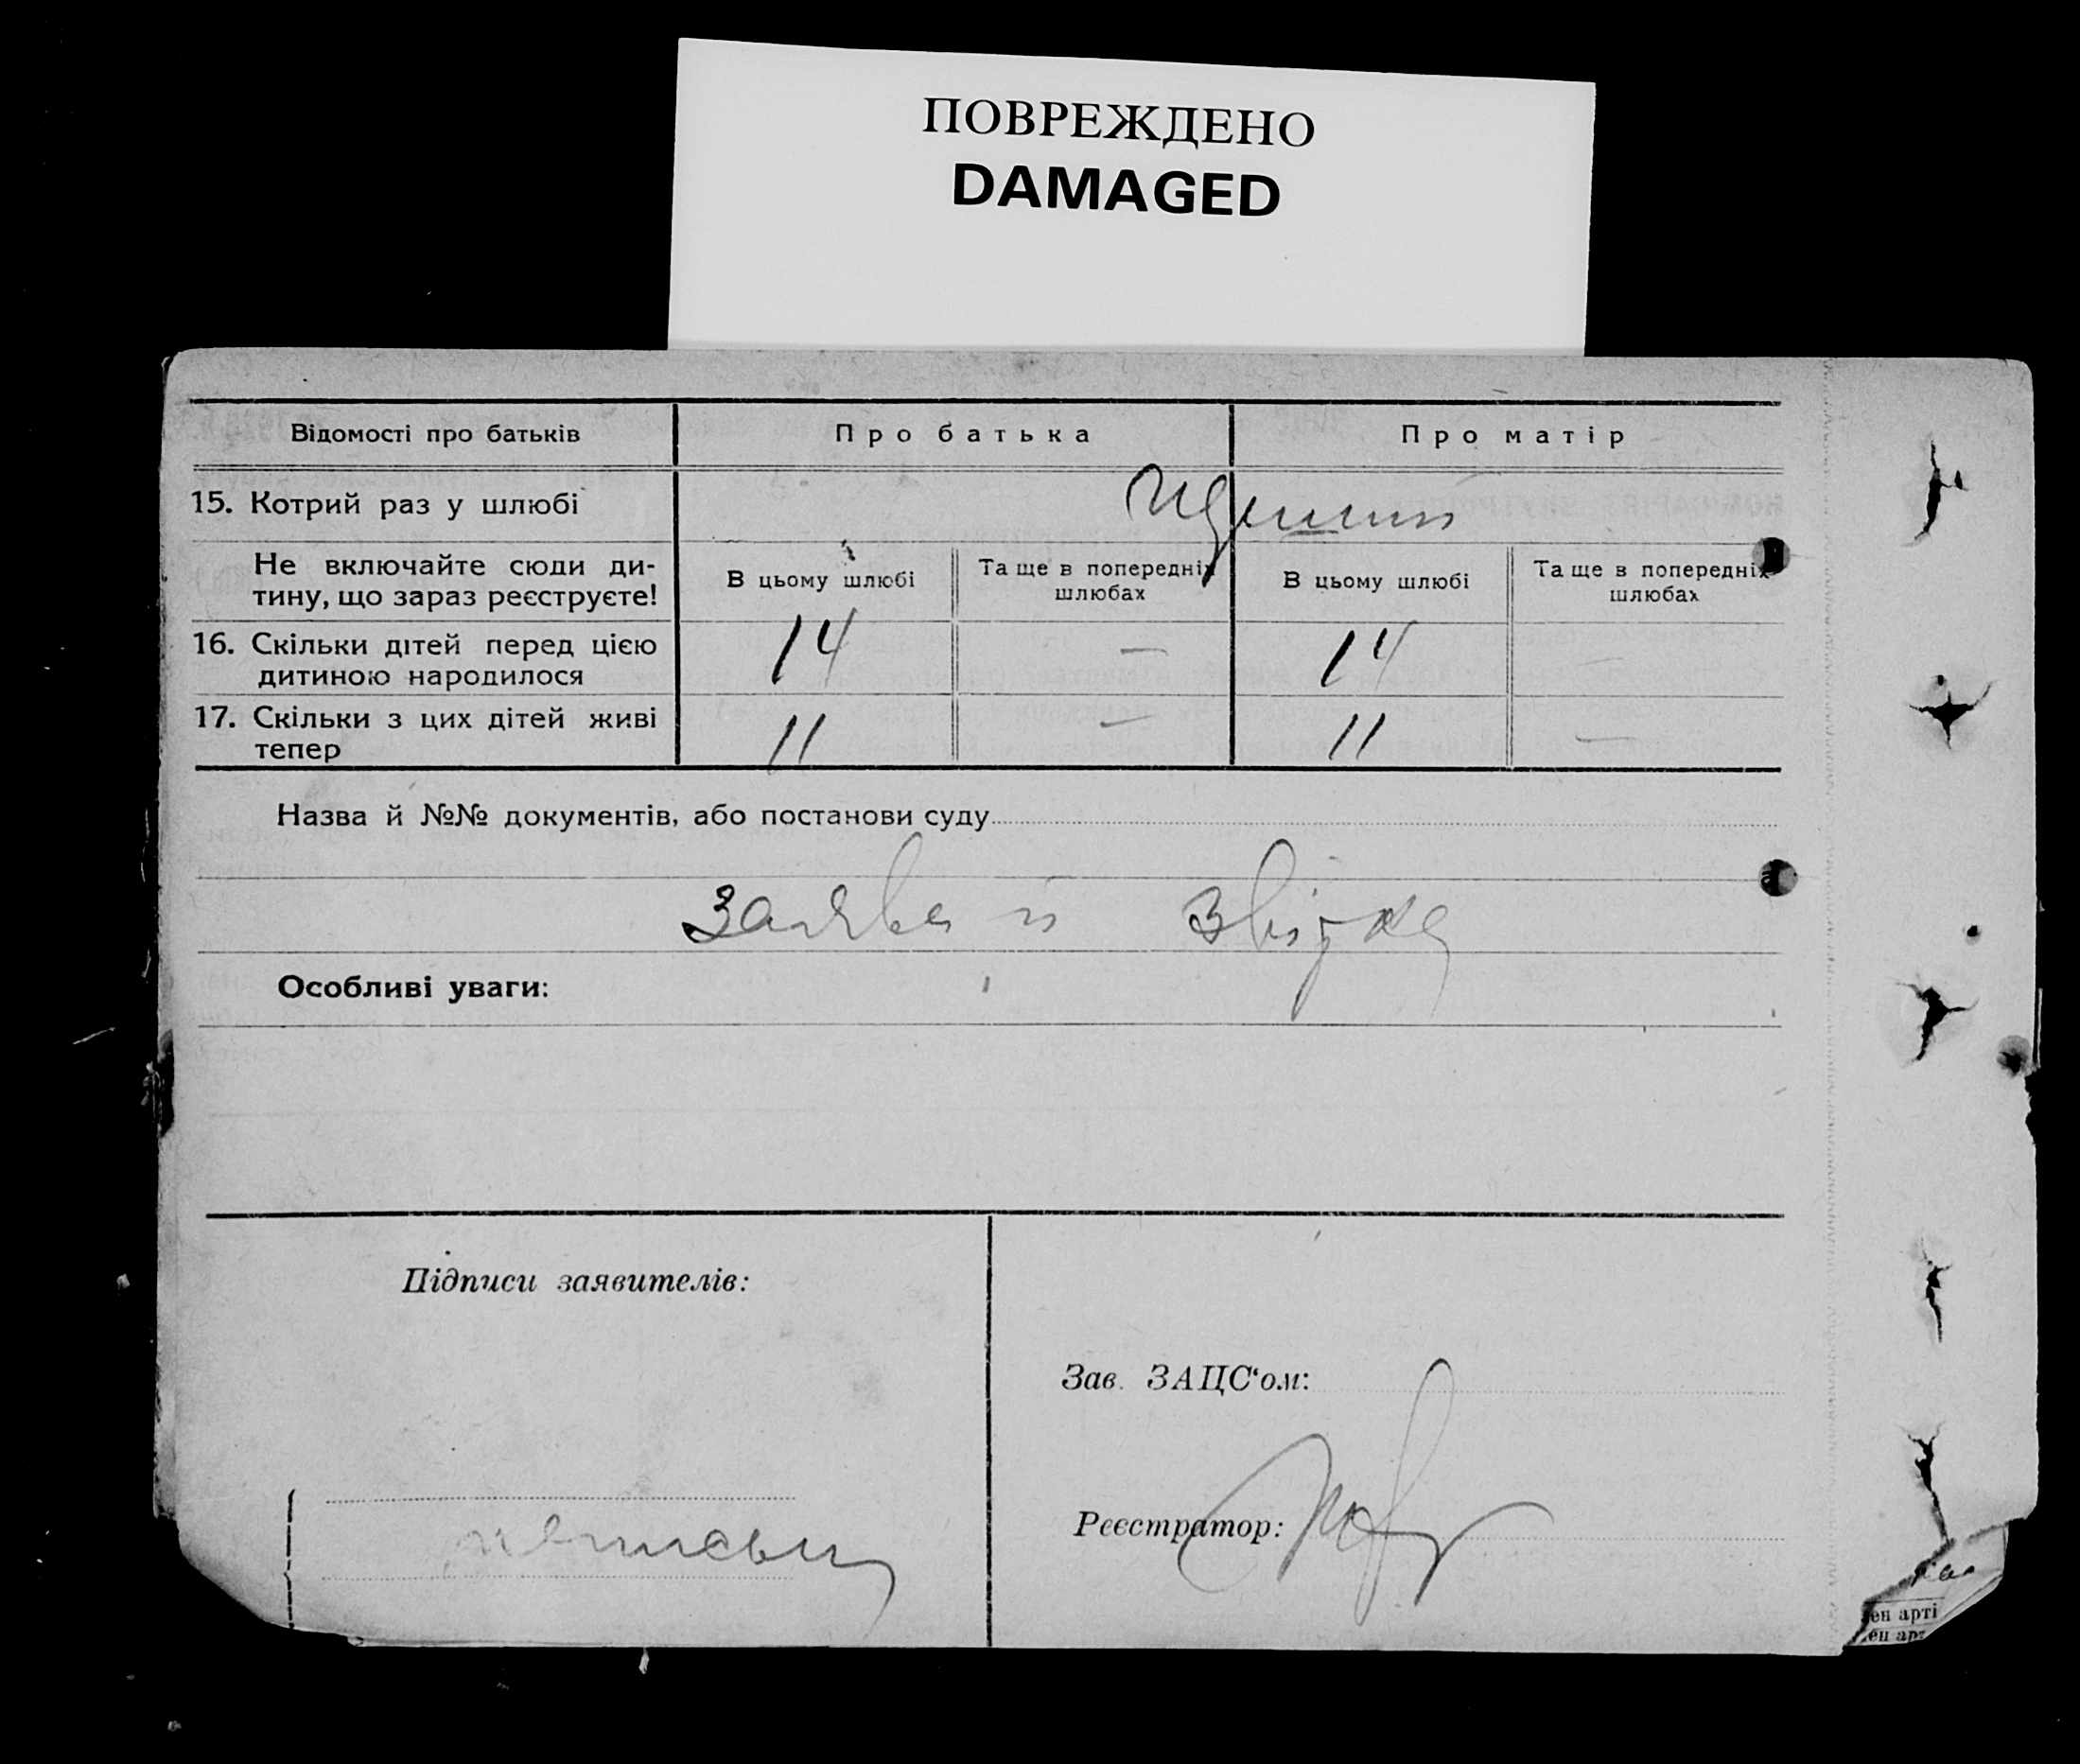 ПОВРЕЖДЕНО
DAMAGED
Відомості про батьків
Про батька
Про матір
15. Котрий раз у шлюбі
Не включайте сюди ди-
тину, що зараз реєструєте!
В цьому шлюбі
Та ще в попередніх
шлюбах
В цьому шлюбі
Та ще в попередніх
шлюбах
16. Скільки дітей перед цією
дитиною народилося
14
—
14
—
17. Скільки з цих дітей живі
тепер
11
—
11
—
Назва й №№ документів, або постанови суду
заява й звідка
Особливі уваги:
Підписи заявителів:
Зав. ЗАЦС‘ом:
Реєстратор:
ен арті
ен арт